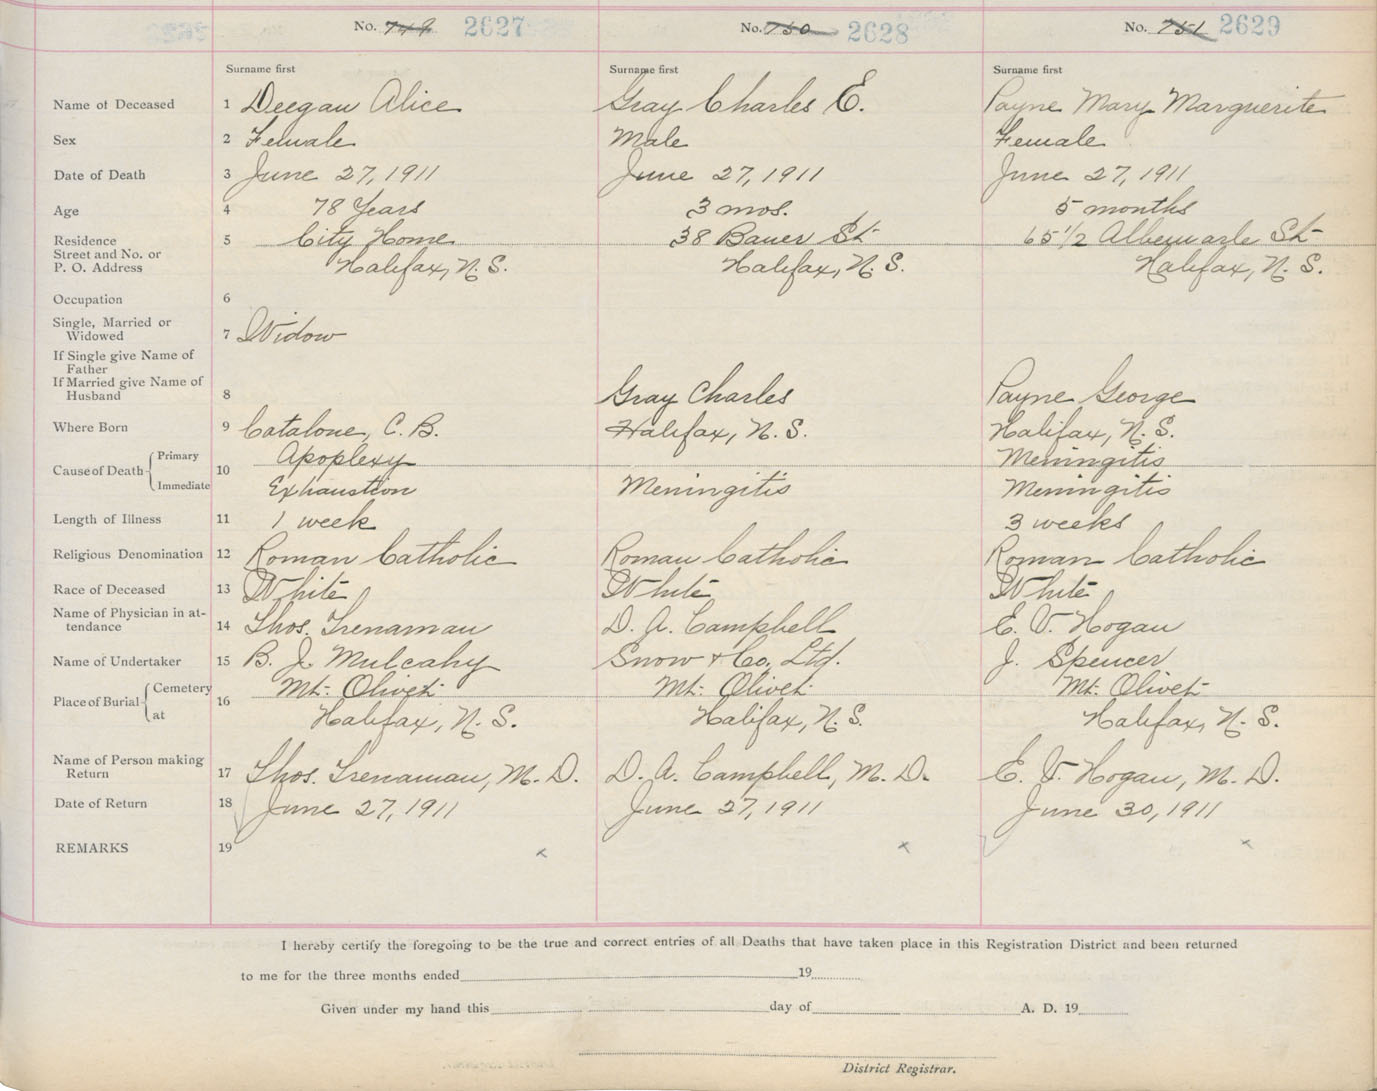 No. 749 2627 No. 750 2628 No. 751 2629
Surname first Surname first Surname first
Name of Deceased 1 Deegan Alice Gray Charles E. Payne Mary Marguerite
Sex 2 Female Male Female
Date of Death 3 June 27, 1911 June 27, 1911 June 27, 1911
Age 4 78 Years 3 mos. 5 months
Residence 5 City Home 38 Bauer St 65 1/2 Albemarle St
Street and No. or
P. O. Address Halifax, N. S. Halifax, N. S. Halifax, N. S.
Occupation 6
Single, Married or
Widowed 7 Widow
If Single give Name of
Father
If Married give Name of
Husband 8 Gray Charles Payne George
Where Born 9 Catalone, C. B. Halifax, N. S. Halifax, N. S.
Cause of Death Primary 10 Apoplexy Meningitis
Immediate Exhaustion Meningitis Meningitis
Length of Illness 11 1 week 3 weeks
Religious Denomination 12 Roman Catholic Roman Catholic Roman Catholic
Race of Deceased 13 White White White
Name of Physician in at-
tendance 14 Thos. Trenaman D. A. Campbell E. V. Hogan
Name of Undertaker 15 B. J. Mulcahy Snow & Co, Ltd. J. Spencer
Place of Burial Cemetery 16 Mt. Olivet Mt. Olivet Mt. Olivet
at Halifax, N. S. Halifax, N. S. Halifax, N. S.
Name of Person making
Return 17 Thos. Trenaman, M. D. D. A. Campbell, M. D. E. V. Hogan, M. D.
Date of Return 18 June 27, 1911 June 27, 1911 June 30, 1911
REMARKS 19 x x x
I hereby certify the foregoing to be the true and correct entries of all Deaths that have taken place in this Registration District and been returned
to me for the three months ended 19
Given under my hand this day of A. D. 19
District Registrar.